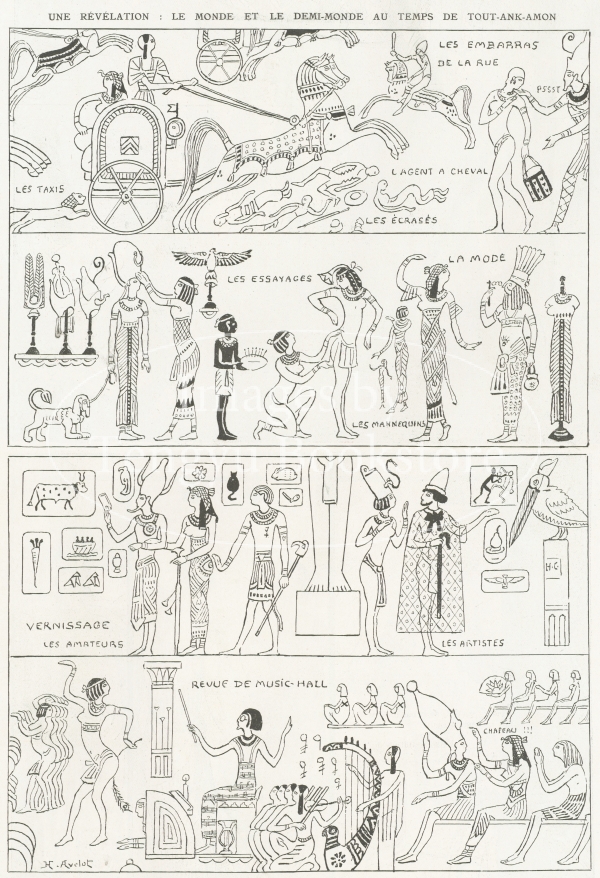 UNE RÉVÉLATION : LE MONDE ET LE DEMI-MONDE AU TEMPS DE TOUT-ANK-AMON
LES EMBARRAS
DE LA RUE
PSSST
L'AGENT A CHEVAL
LES TAXIS
LES ÉCRASÉS
LA MODE
LES ESSAYAGES
LES MANNEQUINS
H.G.
VERNISSAGE
LES AMATEURS
LES ARTISTES
REVUE DE MUSIC-HALL
CHAPEAU !!!
H. Avelot